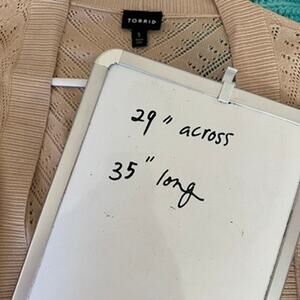 TORRID
29" across
35" long